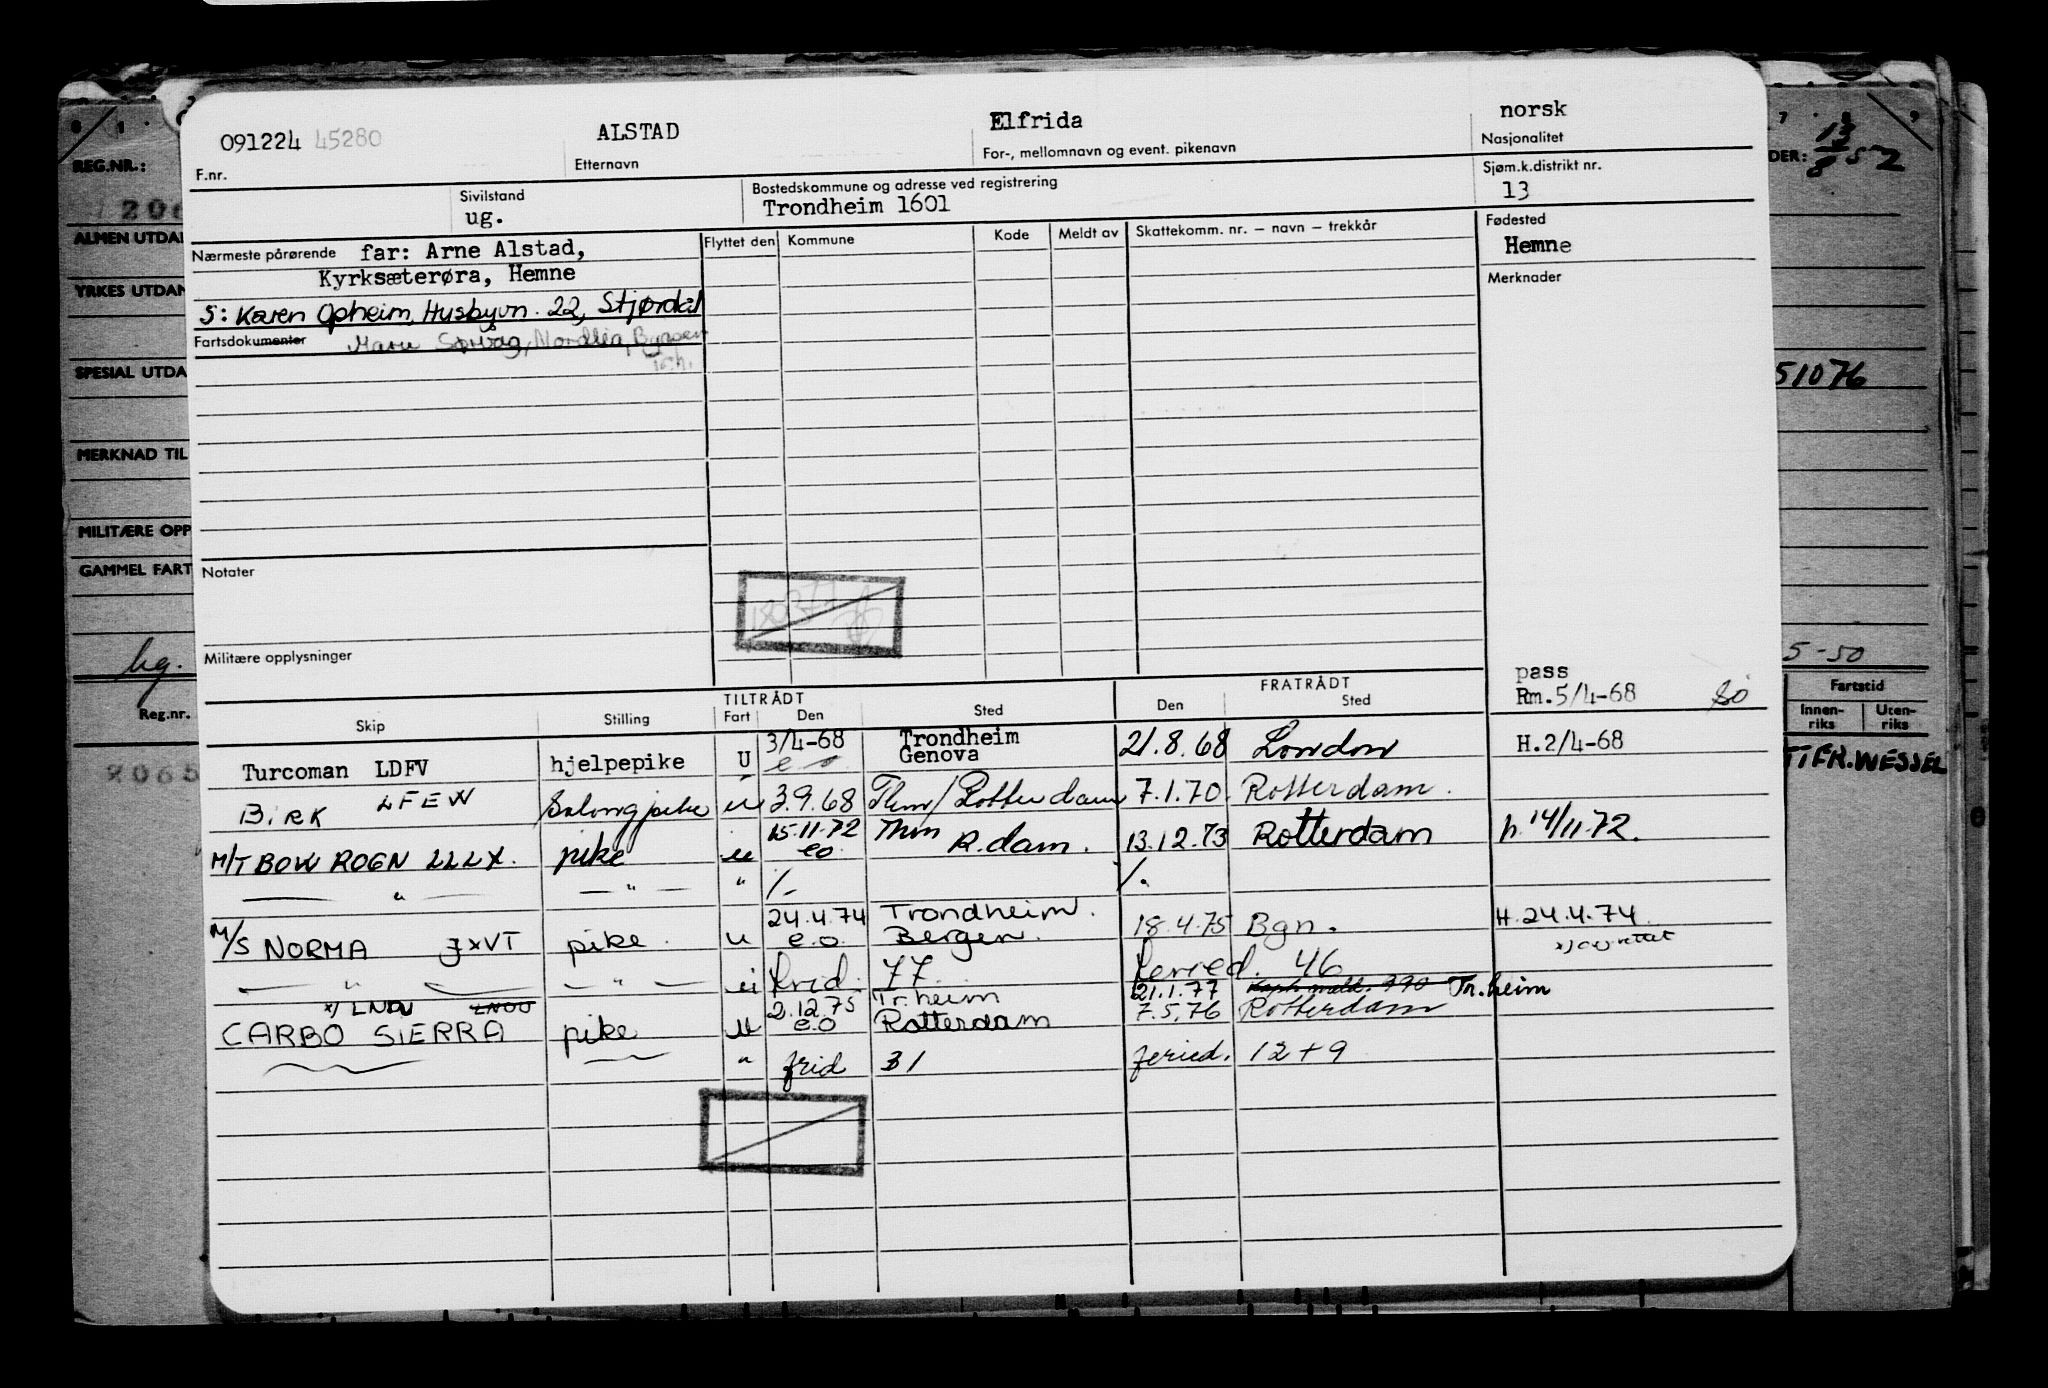 091224 45280 ALSTAD Elfrida norsk
F.nr. Etternavn For-, mellomnavn og event. pikenavn Nasjonalitet
Sivilstand Bostedskommune og adresse ved registrering Sjøm.k.distrikt nr.
ug. Trondheim 1601 13
Nærmeste pårørende far: Arne Alstad, Flyttet den Kommune Kode Meldt av Skattekomm. nr. — navn — trekkår Fødested
Kyrksæterøra, Hemne Hemne
Merknader
S: Karen Opheim, Husbyvn. 22, Stjørdal
Fartsdokumenter
Notater
Militære opplysninger
pass
Rm. 5/4-68
TILTRÅDT FRATRÅDT
Skip Stilling Fart Den Sted Den Sted
Turcoman LDFV hjelpepike U 3/4-68 Trondheim 21.8.68 London H.2/4-68
e o Genova
BIRK LFEW Salongpike u 3.9.68 Thm/Rotterdam 7.1.70. Rotterdam.
M/T BOW ROGN LLLX. pike u 15.11.72 Thm 13.12.73 Rotterdam h. 14/11.72.
eo. R.dam.
— " — — " — " /- /.
M/S NORMA JXVT pike. u 24.4.74 Trondheim. 18.4.75 Bgn. H. 24.4.74.
e.o. Bergen.
— " — — " — u frid. 77. feried. 46
21.1.77 Tr.heim
x) LNDV LNOU
CARBO SIERRA pike u 2.12.75 Tr.heim 7.5.76 Rotterdam
e.o Rotterdam
" frid 31 feried. 12+9
REG.NR.:
206
ALMEN UTDA
YRKES UTDAN
SPESIAL UTDA
MERKNAD TIL
MILITÆRE OPP
GAMMEL FART
ug.
Reg.nr.
2065
DER: 52
51076
5-50
Fartstid
Innen-riks Uten-riks
FR.WESSEL